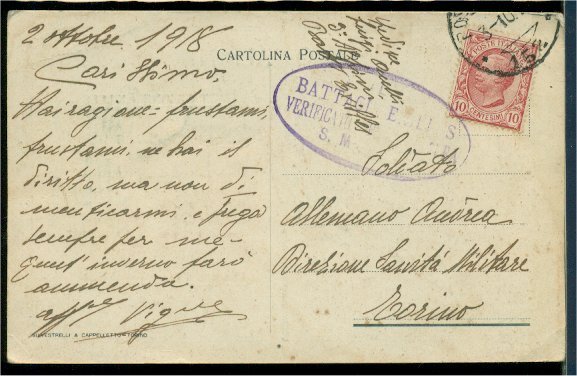 2 ottobre 1918
Carissimo,
Hai ragione - frustami,
frustami, ne hai il
diritto, ma non di
menticarmi, e prega
sempre per me -
quest' inverno farò
ammenda.
aff.mo
CARTOLINA POSTALE
BATTAGL
VERIFICAT
S. M.
POSTE ITALIANE
10 CENTESIMI 10
Soldato
Allemano Andrea
Direzione Sanità Militare
Torino
SILVESTRELLI & CAPPELLETTO - TORINO